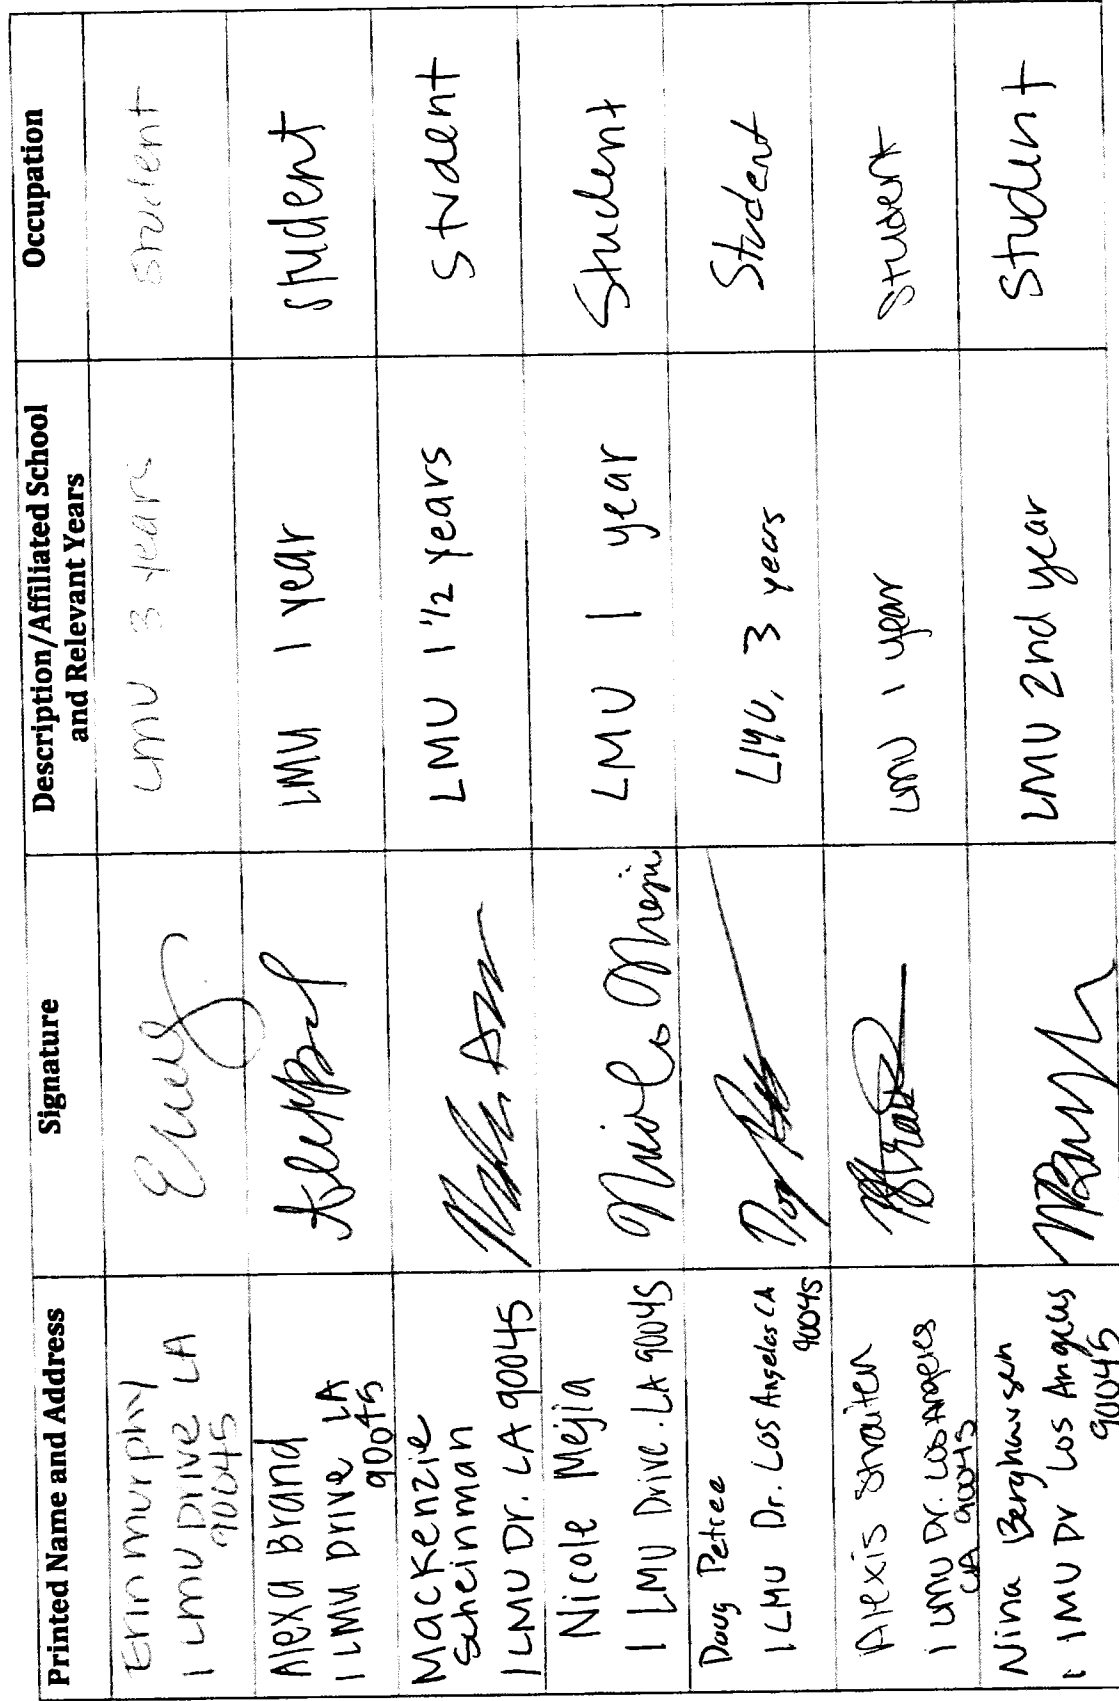 Printed Name and Address
Signature
Description/Affiliated School
and Relevant Years
Occupation
Erin Murphy
1 LMU Drive LA
90045
LMU 3 years
Student
Alexa Brand
1 LMU Drive LA
90045
LMU 1 year
Student
Mackenzie
Scheinman
1 LMU Dr. LA 90045
LMU 1 1/2 years
Student
Nicole Mejia
1 LMU Drive. LA 90045
Nicole Mejia
LMU 1 year
Student
Doug Petree
1 LMU Dr. Los Angeles CA
90045
LMU, 3 years
Student
Alexis Straiten
1 LMU Dr. Los Angeles
CA 90045
LMU 1 year
Student
Nina Berghausen
1 LMU Dr Los Angeles
90045
LMU 2nd year
Student